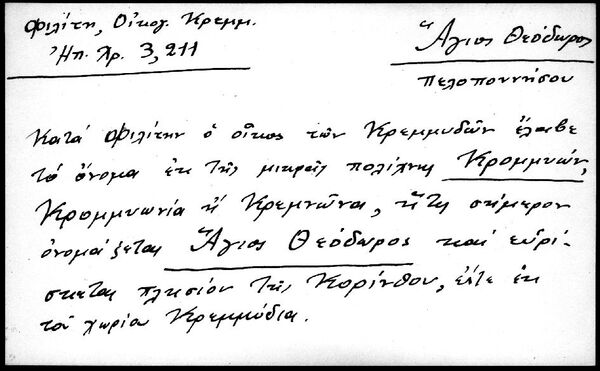 Φιλίτη, Οἶκογ. Κρεμμ.
Ἠπ. Χρ. 3, 211
Ἅγιος Θεόδωρος
Πελοποννήσου
Κατά Φιλίτην ὁ οἶκος τῶν Κρεμμυδῶν ἔλαβε
τό ὄνομα ἐκ τῆς μικρᾶς πολίχνης Κρομμυών,
Κρομμυωνία ἤ Κρεμνῶνα, ἥτις σήμερον
ὀνομάζεται Ἅγιος Θεόδωρος καί εὑρί-
σκεται πλησίον τῆς Κορίνθου, εἴτε ἐκ
τοῦ χωρίου Κρεμμύδια.